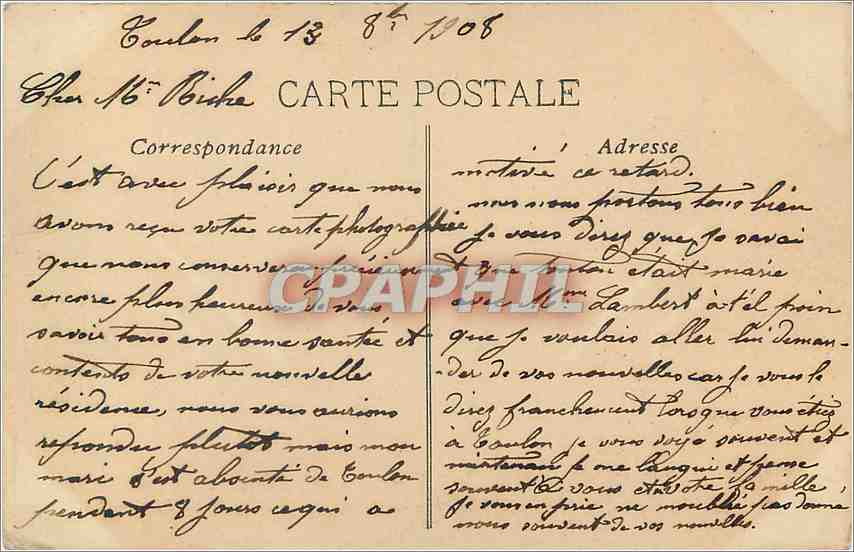 Toulon le 13 8bre 1908
Cher Mr Riche
CARTE POSTALE
Correspondance
C'est avec plaisir que nous
avons reçu votre carte photographiée
que nous conserverons précieusement
encore plus heureux de vous
savoir tous en bonne santée et
contents de votre nouvelle
résidence, nous vous aurions
repondu plutôt mais mon
mari s'est absenté de Toulon
pendant 8 jours ce qui a
Adresse
motivé ce retard.
nous nous portons tous bien
Je vous direz que je savai
que était marié
avec Mme Lambert à tél poin
que je voulais aller lui deman-
-der de vos nouvelles car je vous le
direz franchement lorsque vous étiez
à Toulon je vous voyé souvent et
maintenan je me langui et pense
souvent à vous et votre famille
Je vous en prie ne m'oublié pas donné
nous souvent de vos nouvelles.
CPAPHIL